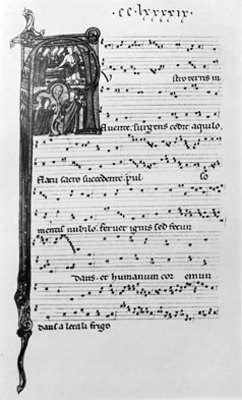 ·cc·lxxxxix·
stro terris in
fluente. surgens cedit aquilo
flatu sacro succedente. pul so
mentis nubilo. feruet ignis sed fecun
dans. et humanum cor emun
dans a letali frigo